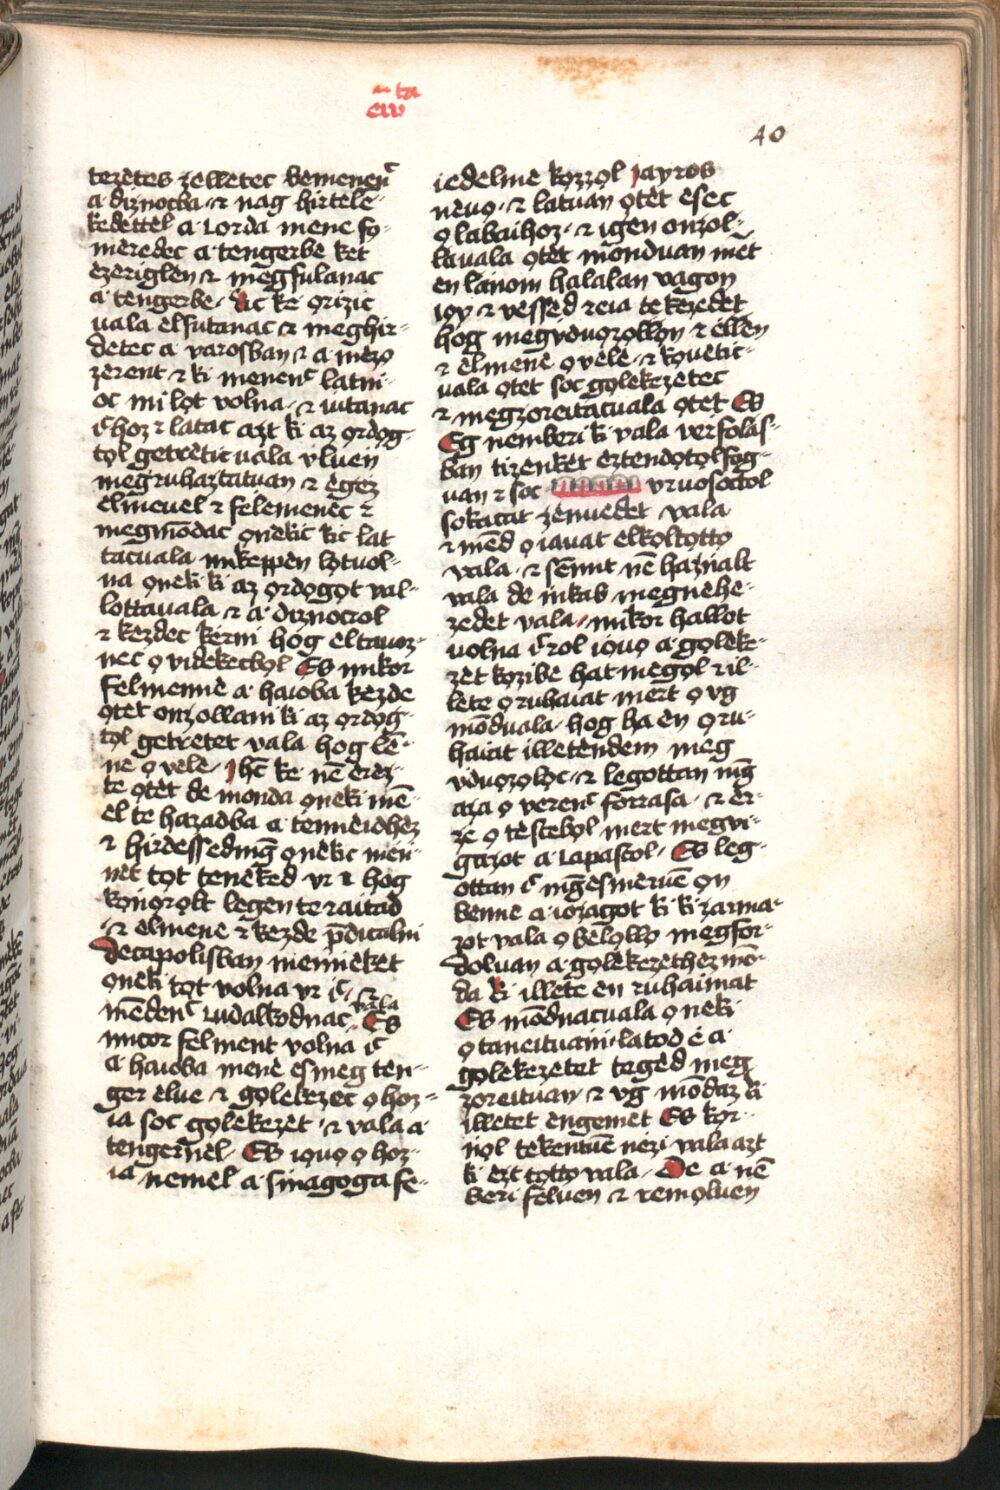 ta
ew
40
tezetes zelletec bemenen̄c
a diznocba · ꞇ nag hirtele-
kedettel a Lorda mene fo-
meredec a tengerbe ket
ezeriglen ꞇ megfulanac
a tengerbe · Ac ke ọrizic
uala elfutanac ꞇ meghir-
detec a varosban ꞇ a mezọ
zerent · ꞇ ki menenc latni-
oc mi lọt volna · ꞇ iutanac
ic hoz ꞇ latac azt ki az ọrdọg
tọl getretic uala vluen
megruhaztatuan ꞇ egez
elmeuel ꞇ felemenec ꞇ
megmōdac ọnekic kic lat
tacuala mikeppen lọtuol-
na ọneki ki az ọrdọgọt val-
lottauala ꞇ a · diznocrol
ꞇ kezdec kerni hog eltauoz-
nec ọ videkecbọl Es mikor
felmenne a · haioba kezde
ọtet onzollani ki az ọrdọg-
tọl getretet vala hog len-
ne ọ vele · Jhc̄ ke nē erez-
te ọtet de monda ọneki mē-
el te hazadba a tenneidhez
ꞇ hirdessed mḡ ọnekic meń-
net tọt teneked vr ꞇ hog
kọńọrọlt legen te raitad
· ꞇ elmene ꞇ kezde p̄dicalni
Decapolisban menńeket
ọneki tọt volna vr ic ·
mēdenc zudalkodnac vala Es
micor felment volna ic
a haioba mene esmeg ten-
ger elue ꞇ gọlekezec ọ hoz-
ia soc gọlekezet · ꞇ vala a
tengernel · Es iọuọ ọ hoz-
ia nemel a sinagoga fe-
iedelme kọzzọl Jayros
neuọ · ꞇ latuan ọtet esec
ọ labaihoz · ꞇ igen onzol-
lauala ọtet mōnduan mēt
en lańom halalan vagon
iọy ꞇ vessed reia te kezedet
hog megvduọzọllọn ꞇ ellen
ꞇ elmene ọ vele · ꞇ kọuetic-
uala ọtet soc gọlekezetec
ꞇ megzoreitacuala ọtet Es
Eg nemberi ki vala verfolas-
ban tizenket eztendọtọl fog-
uan ꞇ soc vruosoctol
sokacat zēnuedet vala
ꞇ mēd ọ iauat elkọltọtte
vala · ꞇ sēmit nē haznalt
vala de inkab megnehe-
zedet vala · mikor hallot
uolna ic rol iọuọ a gọleke-
zet kọzibe hatmegọl ꞇ il-
lete ọ ruhaiat mert ọ vg
mōduala · hog ha en ọ ru-
haiat illetendem meg
vduọzọlọc · ꞇ legottan mḡ
aza ọ verenc forrasa · ꞇ er-
ze ọ testebọl mert megvi-
gazot a Lapastol · Es leg-
ottan ic mḡesmeruē ọn
benne a iozagot ki ki zarma-
zot vala ọ belọllọ megfor-
doluan a gọlekezethez mō-
da ki illete en ruhaimat
Es mōdnacuala ọneki
ọ taneituani latod é a
gọlekezetet teged meg
zoreituan · ꞇ vg mōdaz ki
illetet engemet Es kọr-
ńọl tekentuē nezi vala azt
ki ezt tọtte vala · De a nē
beri feluen ꞇ remọluen